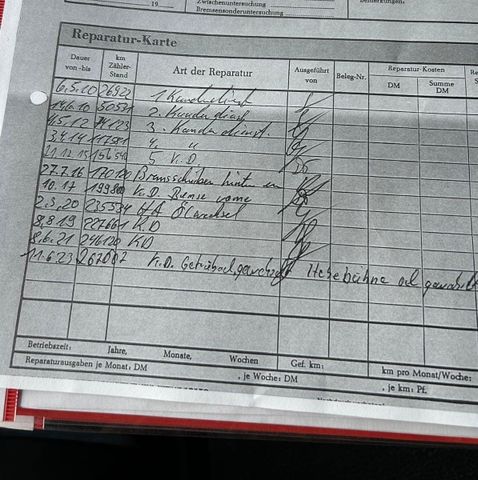 19
Zwischenuntersuchung
Bremsensonderuntersuchung
Bemerkungen:
Reparatur-Karte
Dauer von -bis
km Zähler-Stand
Art der Reparatur
Ausgeführt von
Beleg-Nr.
Reparatur-Kosten
DM
Summe DM
6.5.10 26922 1 Kundendienst
14.6.10 50531 2. Kundendienst
4.5.12 123 3. Kundendienst.
3.4.14 117581 4. "
21.12.15 156540 5 K.D.
27.7.16 170120 Bremsscheiben hinten
10.17 199800 K.D. Bremse vorne
2.3.20 235534 Ölwechsel
8.8.19 227661 K.D
8.6.21 246120 KD
11.6.23 267007 K.D. Hebebühne
Betriebszeit: Jahre, Monate, Wochen Gef. km: km pro Monat/Woche:
Reparaturausgaben je Monat: DM , je Woche: DM , je km: Pf.